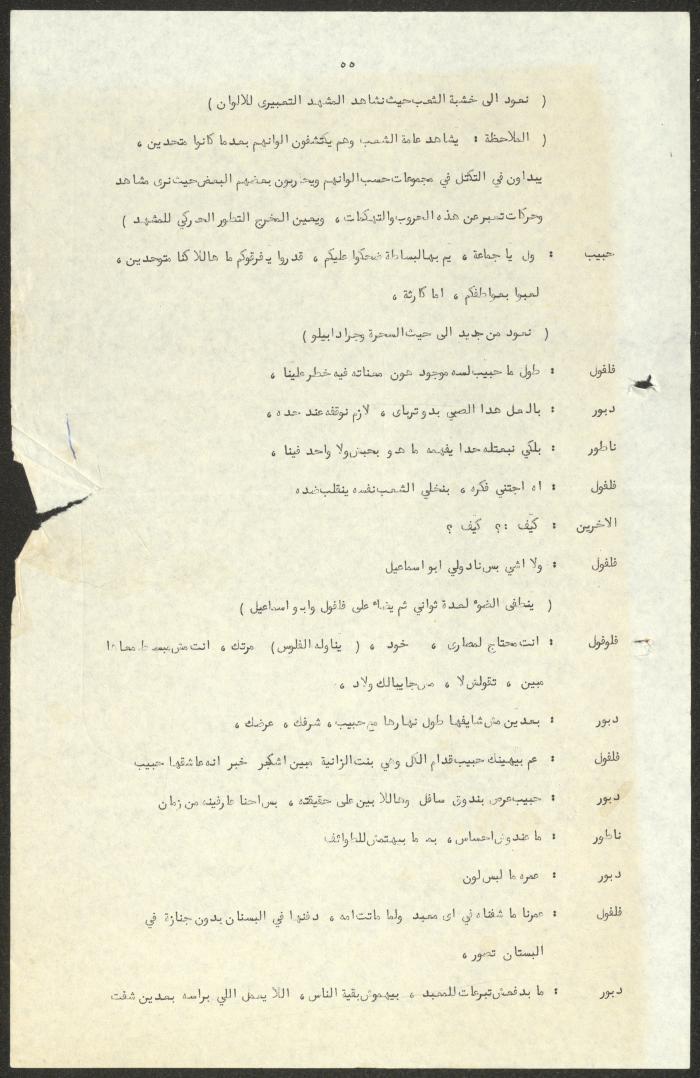 ٥٥
( نعود الى خشبة الشعب حيث نشاهد المشهد التعبيرى للالوان )
( الملاحظة : يشاهد عامة الشعب وهم يكتشفون الوانهم بعدما كانوا متحدين ،
يبداون في التكتل في مجموعات حسب الوانهم ويحاربون بعضهم البعض حيث نرى مشاهد
وحركات تعبر عن هذه الحروب والتهكمات ، ويعين المخرج التطور الحركي للمشهد )
حبيب : ول يا جماعة ، يم بهالبساطة ضحكوا عليكم ، قدروا يفرقوكم ما هاللا كنا متوحدين ،
لعبوا بعواطفكم ، اما كارثة ،
( نعود من جديد الى حيث السحرة وجرادابيلو )
فلفول : طول ما حبيب لسه موجود هون معناته فيه خطر علينا ،
دبور : بالفعل هدا الصبي بدو ترباى ، لازم نوقفه عند حده ،
ناطور : بلكي نبعتله حدا يفهمه ما هدو بحبش ولا واحد فينا ،
فلفول : اه اجتني فكره ، بنخلي الشعب نفسه ينقلب ضده
الاخرين : كيف :؟ كيف ؟
فلفول : ولا اشي بس نادولي ابو اسماعيل
( ينطفى الضوء لمدة ثواني ثم يضاء على فلفول وابو اسماعيل )
فلوفول : انت محتاج لمصارى ، خود ، ( يناوله الفلوس ) مرتك ، انت مش مبسوط معاها
مبين ، تقولش لا ، مش جايبالك ولاد ،
دبور : بعدين مش شايفها طول نهارها مع حبيب ، شرفك ، عرضك ،
فلفول : عم بيهينك حبيب قدام الكل وهي بنت الزانية مبين اشكبر خبر انه عاشقها حبيب
دبور : حبيب عرص بندوق سافل وهاللا بين على حقيقته ، بس احنا عارفينه من زمان
ناطور : ما عندوش احساس ، بعد ما بيهتمش للطوائف
دبور : عمره ما لبس لون
فلفول : عمرنا ما شفناه في اى معبد ولما ماتت امه ، دفنها في البستان بدون جنازة في
البستان تصور ،
دبور : ما بدفعش تبرعات للمعبد ، بيهموش بقية الناس ، اللا يعمل اللي براسه بعدين شفت